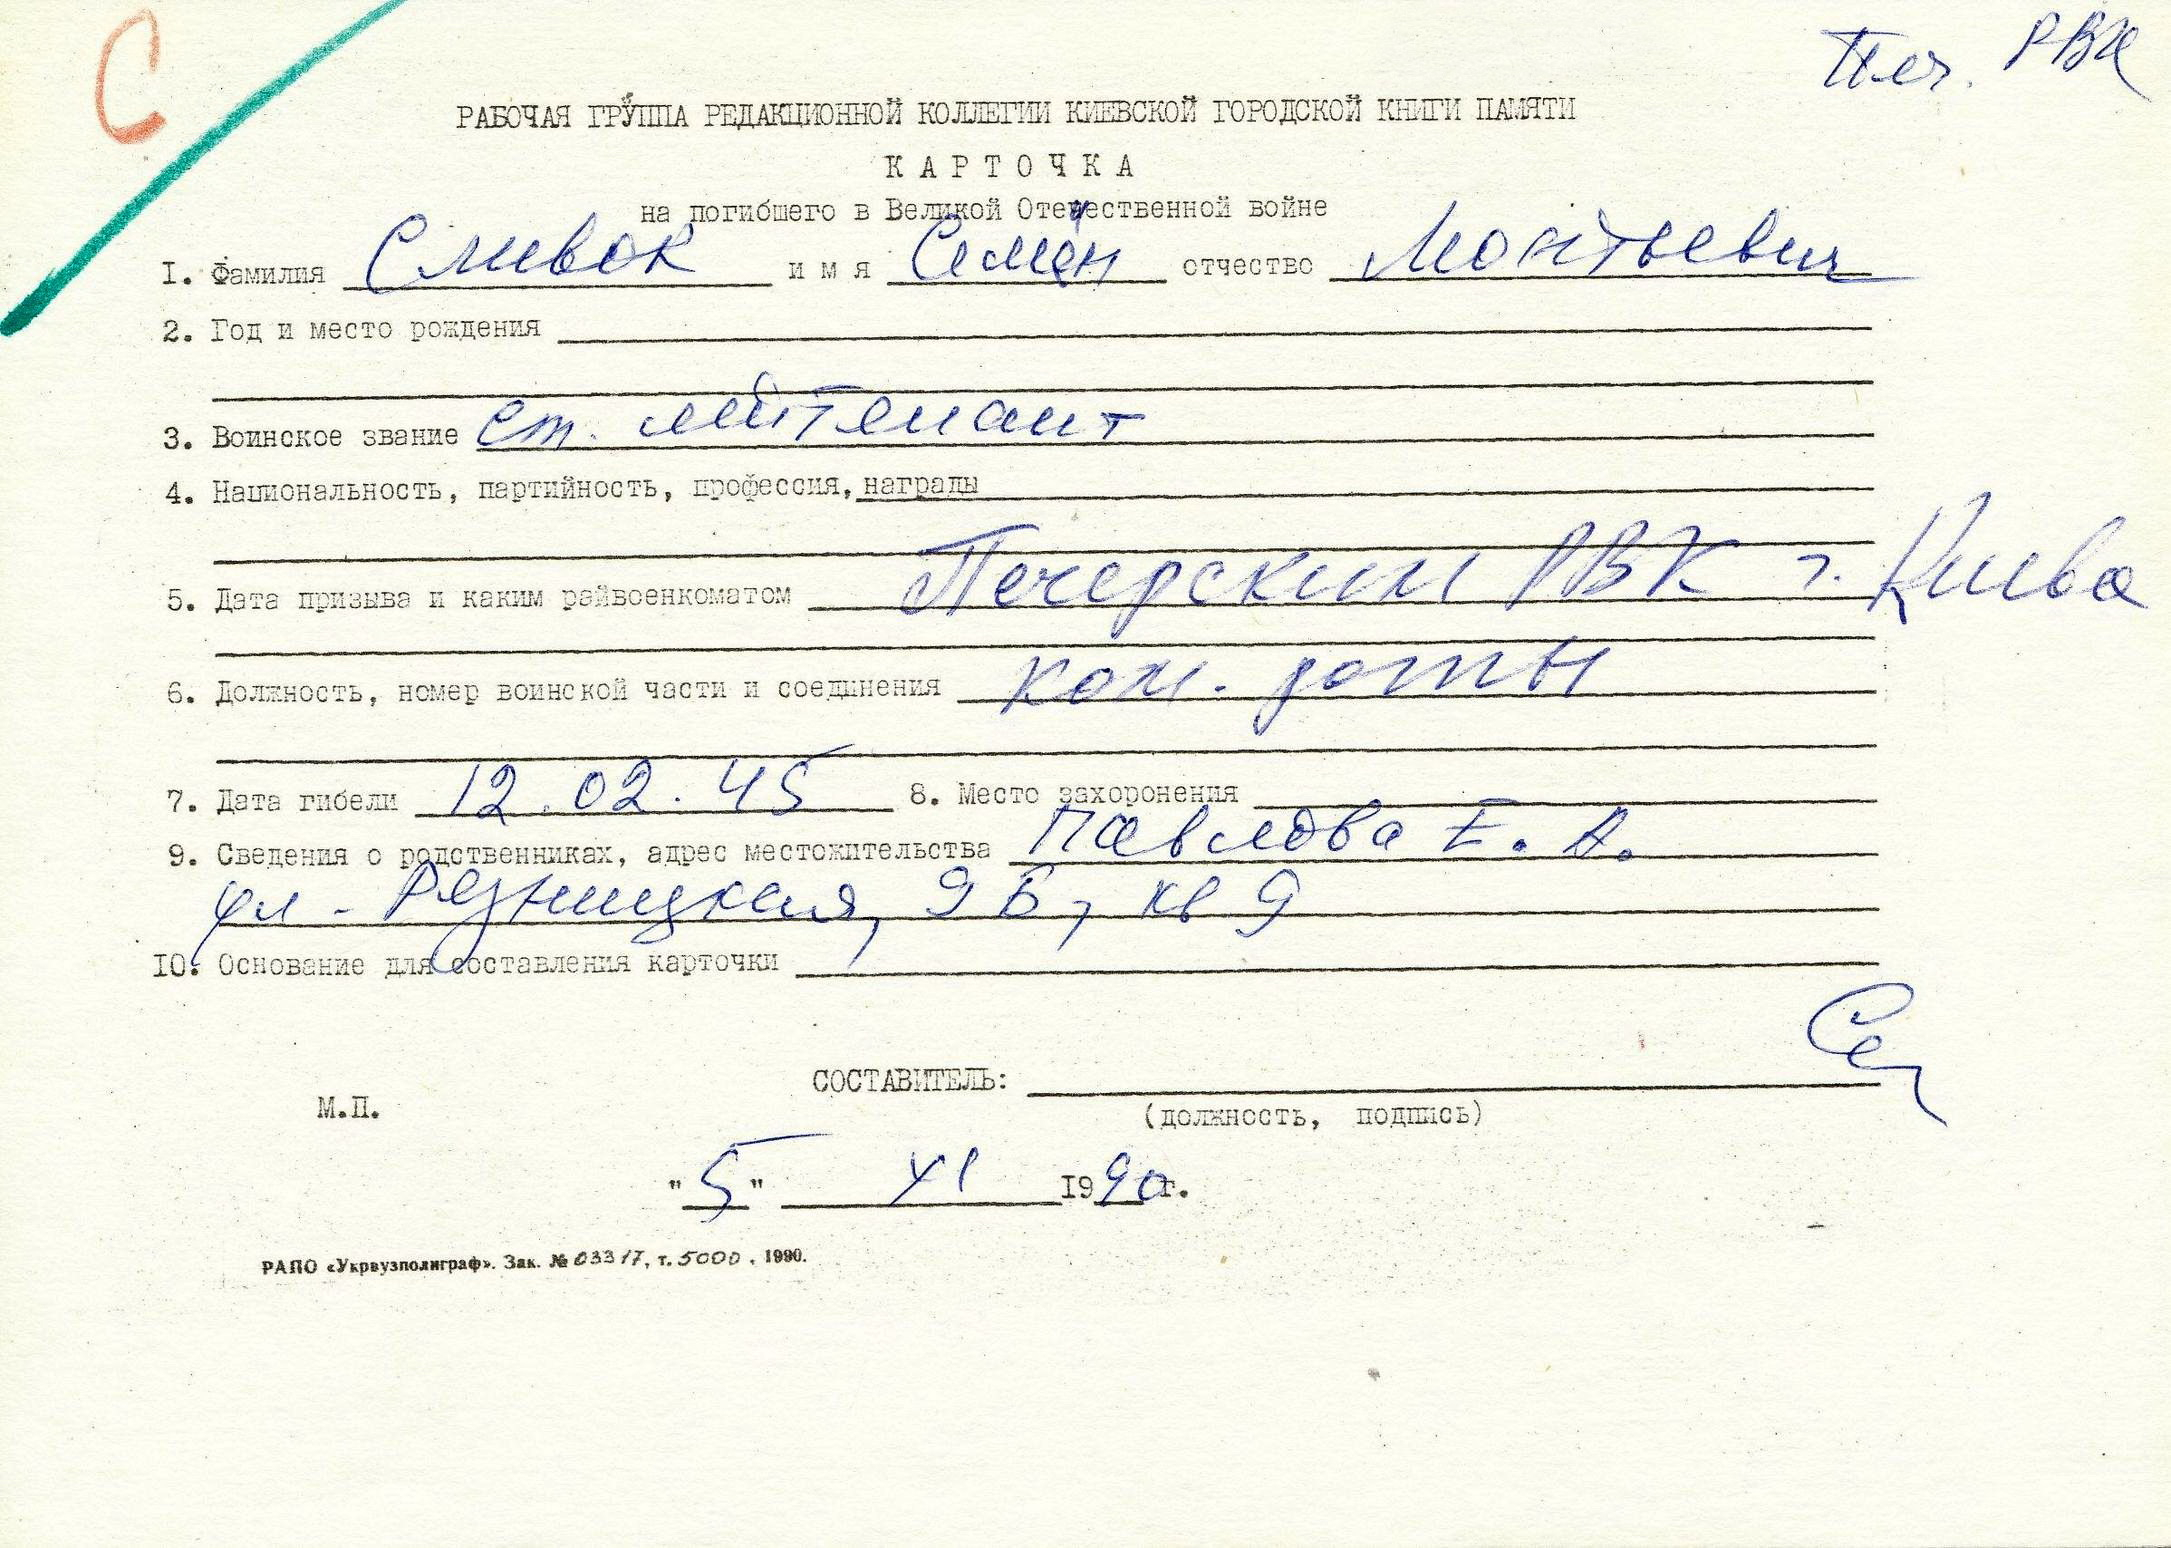 С
Печ. РВК
РАБОЧАЯ ГРУППА РЕДАКЦИОННОЙ КОЛЛЕГИИ КИЕВСКОЙ ГОРОДСКОЙ КНИГИ ПАМЯТИ
КАРТОЧКА
на погибшего в Великой Отечественной войне
I. Фамилия Сливок имя Семён отчество
2. Год и место рождения
3. Воинское звание ст. лейтенант
4. Национальность, партийность, профессия, награды
5. Дата призыва и каким райвоенкоматом Печерским РВК г. Киева
6. Должность, номер воинской части и соединения ком. роты
7. Дата гибели 12.02.45 8. Место захоронения
9. Сведения о родственниках, адрес местожительства Павлова Е. А.
ул. Резницкая, 9 Б, кв 9
IO. Основание для составления карточки
СОСТАВИТЕЛЬ:
М.П.
(должность, подпись)
"5" XI 1990г.
РАПО «Укрвузполиграф». Зак. № 03317, т. 5000, 1990.